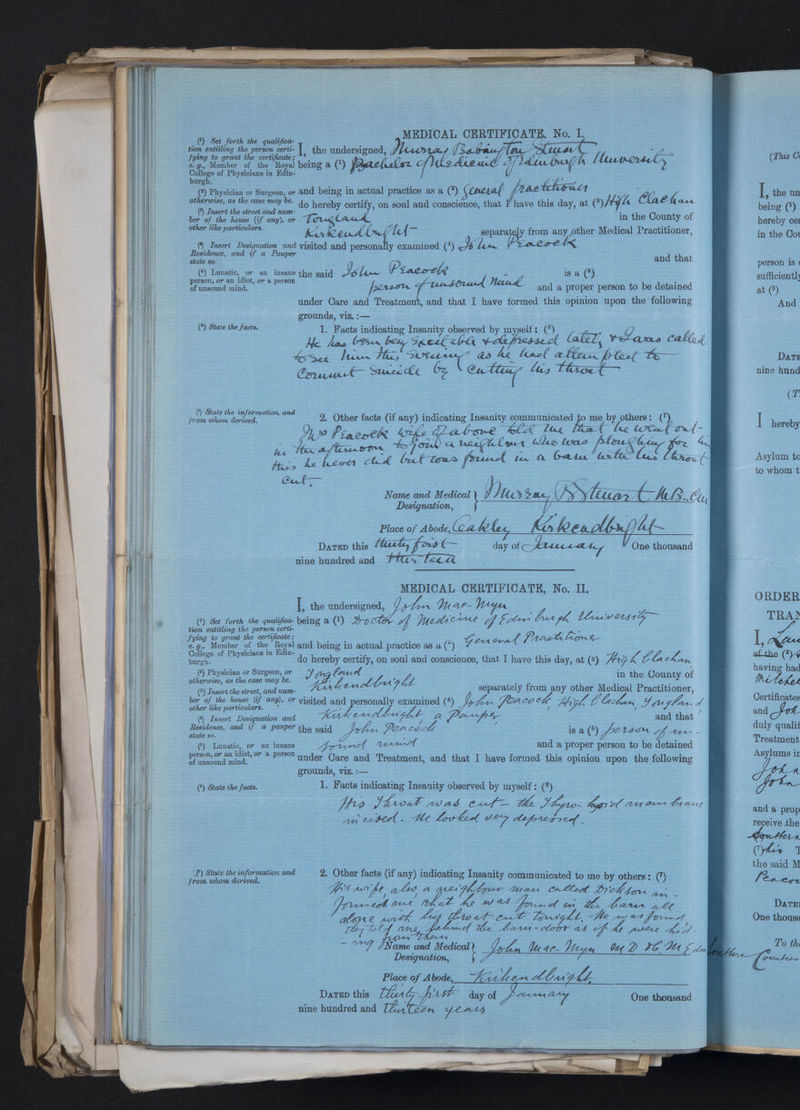 MEDICAL CERTIFICATE, No. I.
(¹) Set forth the qualifica-
tion entitling the person certi-
fying to grant the certificate;
e.g., Member of the Royal
College of Physicians in Edin-
burgh.
I, the undersigned, Murray Babington Steuart
being a (¹) Bachelor of Medicine of Edinburgh University
(²) Physician or Surgeon, or
otherwise, as the case may be.
and being in actual practice as a (²) General Practitioner
(³) Insert the street and num-
ber of the house (if any), or
other like particulars.
do hereby certify, on soul and conscience, that I have this day, at (³) High Clachan
Tongland in the County of
Kirkcudbright separately from any other Medical Practitioner,
(⁴) Insert Designation and
Residence, and if a Pauper
state so.
visited and personally examined (⁴) John Peacock
and that
(⁵) Lunatic, or an insane
person, or an idiot, or a person
of unsound mind.
the said John Peacock is a (⁵)
person of unsound mind and a proper person to be detained
under Care and Treatment, and that I have formed this opinion upon the following
grounds, viz.:—
(⁶) State the facts.
1. Facts indicating Insanity observed by myself: (⁶)
He has been very excitable & depressed lately & I was called
to see him this evening as he had attempted to
commit suicide by cutting his throat
(⁷) State the information, and
from whom derived.
2. Other facts (if any) indicating Insanity communicated to me by others: (⁷)
Mrs Peacock wife of above told me that he went out
in the afternoon to join a neighbour who was ploughing for him
this he never did but was found in a barn with his throat
cut
Name and Medical Designation, Murray B Steuart M.B.
Place of Abode, Oakley Kirkcudbright
DATED this thirty first day of January One thousand
nine hundred and thirteen
MEDICAL CERTIFICATE, No. II.
I, the undersigned, John Mac-Myn
(¹) Set forth the qualifica-
tion entitling the person certi-
fying to grant the certificate;
e.g., Member of the Royal
College of Physicians in Edin-
burgh.
being a (¹) Doctor of Medicine of Edinburgh University
and being in actual practice as a (²) General Practitioner
do hereby certify, on soul and conscience, that I have this day, at (³) High Clachan
(²) Physician or Surgeon, or
otherwise, as the case may be.
Tongland in the County of
(³) Insert the street, and num-
ber of the house (if any), or
other like particulars.
Kirkcudbright separately from any other Medical Practitioner,
visited and personally examined (⁴) John Peacock High Clachan, Tongland
(⁴) Insert Designation and
Residence, and if a pauper
state so.
Kirkcudbright, a Pauper and that
the said John Peacock is a (⁵) person of un-
(⁵) Lunatic, or an insane
person, or an idiot, or a person
of unsound mind.
sound mind and a proper person to be detained
under Care and Treatment, and that I have formed this opinion upon the following
grounds, viz.:—
(⁶) State the facts.
1. Facts indicating Insanity observed by myself: (⁶)
His Throat was cut - the Thyro-hyoid membrane
incised. He looked very depressed.
(⁷) State the information and
from whom derived.
2. Other facts (if any) indicating Insanity communicated to me by others: (⁷)
His wife, also a neighbour man called Dickson in-
formed me that he was found in the barn all
alone with his throat cut tonight. He was found
they tell me, behind the barn-door as if he were hid-
-ing from them
Name and Medical Designation, John Mac-Myn M.D.
Place of Abode, Kirkcudbright.
DATED this thirty-first day of January One thousand
nine hundred and thirteen years
(This
I, the un
being (¹)
hereby cer
in the Cou
person is
sufficiently
at (³)
And
DATE
nine hund
(T
I hereby
Asylum to
to whom t
ORDER
TRAN
I,
of the (²)
having had
Mitchel
Certificates
and Joh
duly qualif
Treatment
Asylums in
John
John
and a prop
receive the
Southern
the said M
Peacoc
DATED
One thousa
To th
Southern Counties